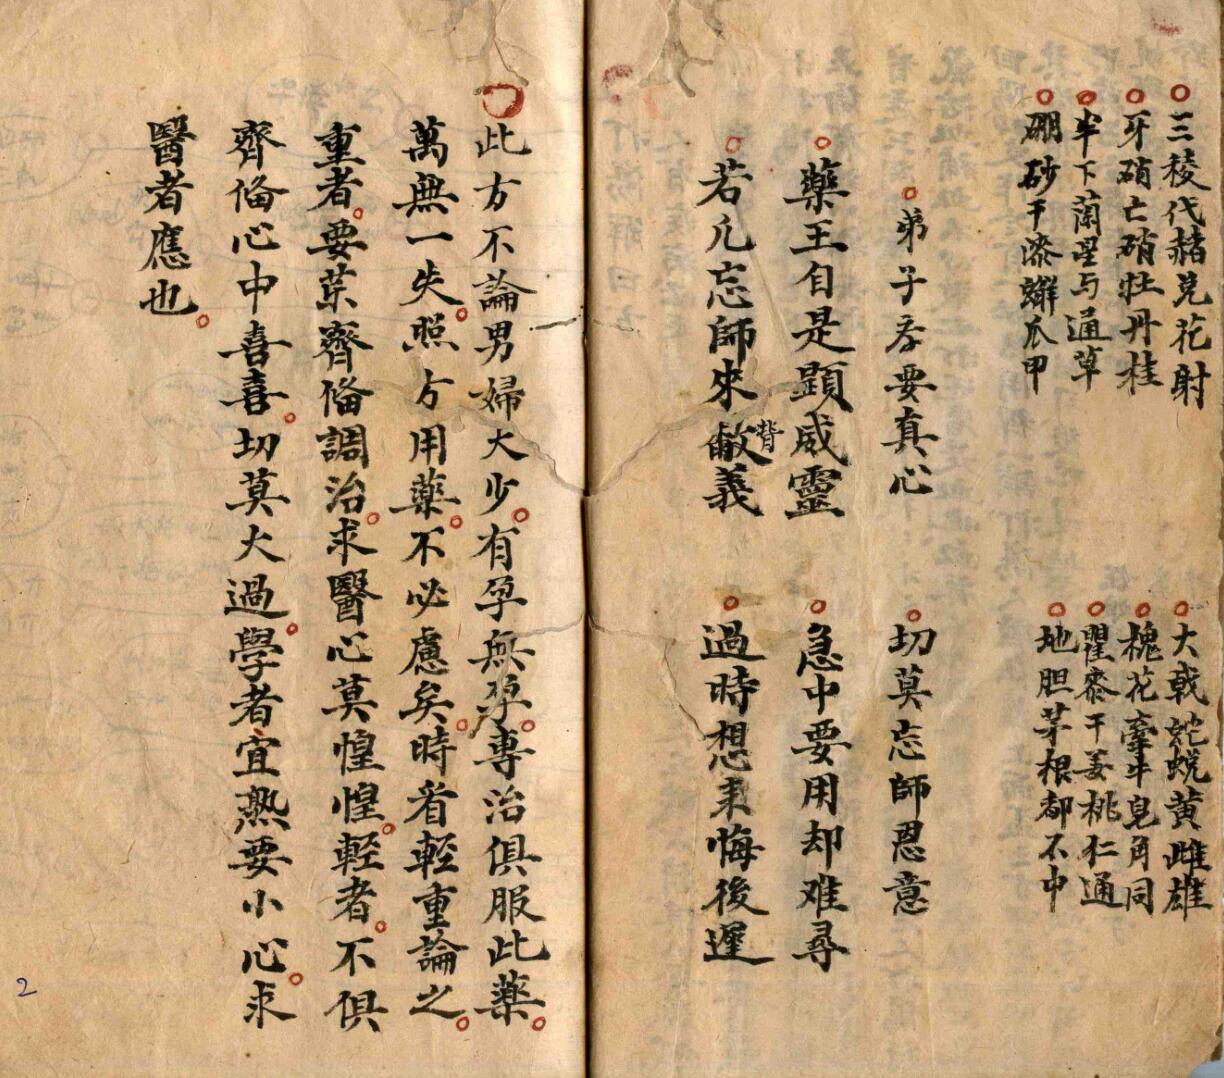 三稜代赭芫花射
大戟蛇蛻黄雌雄
牙硝亡硝牡丹桂
槐花牽牛皂角同
半下蘭星与通草
瞿麥干姜桃仁通
硼砂干漆蠏爪甲
地胆茅根都不中
弟子吞要真心
切莫忘師恩意
藥王自是顕威靈
急中要用却难尋
若凡忘師來背敝義
過時想来悔後遲
此方不論男婦大少有孕無孕專治俱服此藥
萬無一失照方用藥不必慮矣時看輕重論之
重者要藥齊俻調治求醫心莫惶惶輕者不俱
齊俻心中喜喜切莫大過學者宜熟要小心求
醫者應也
2